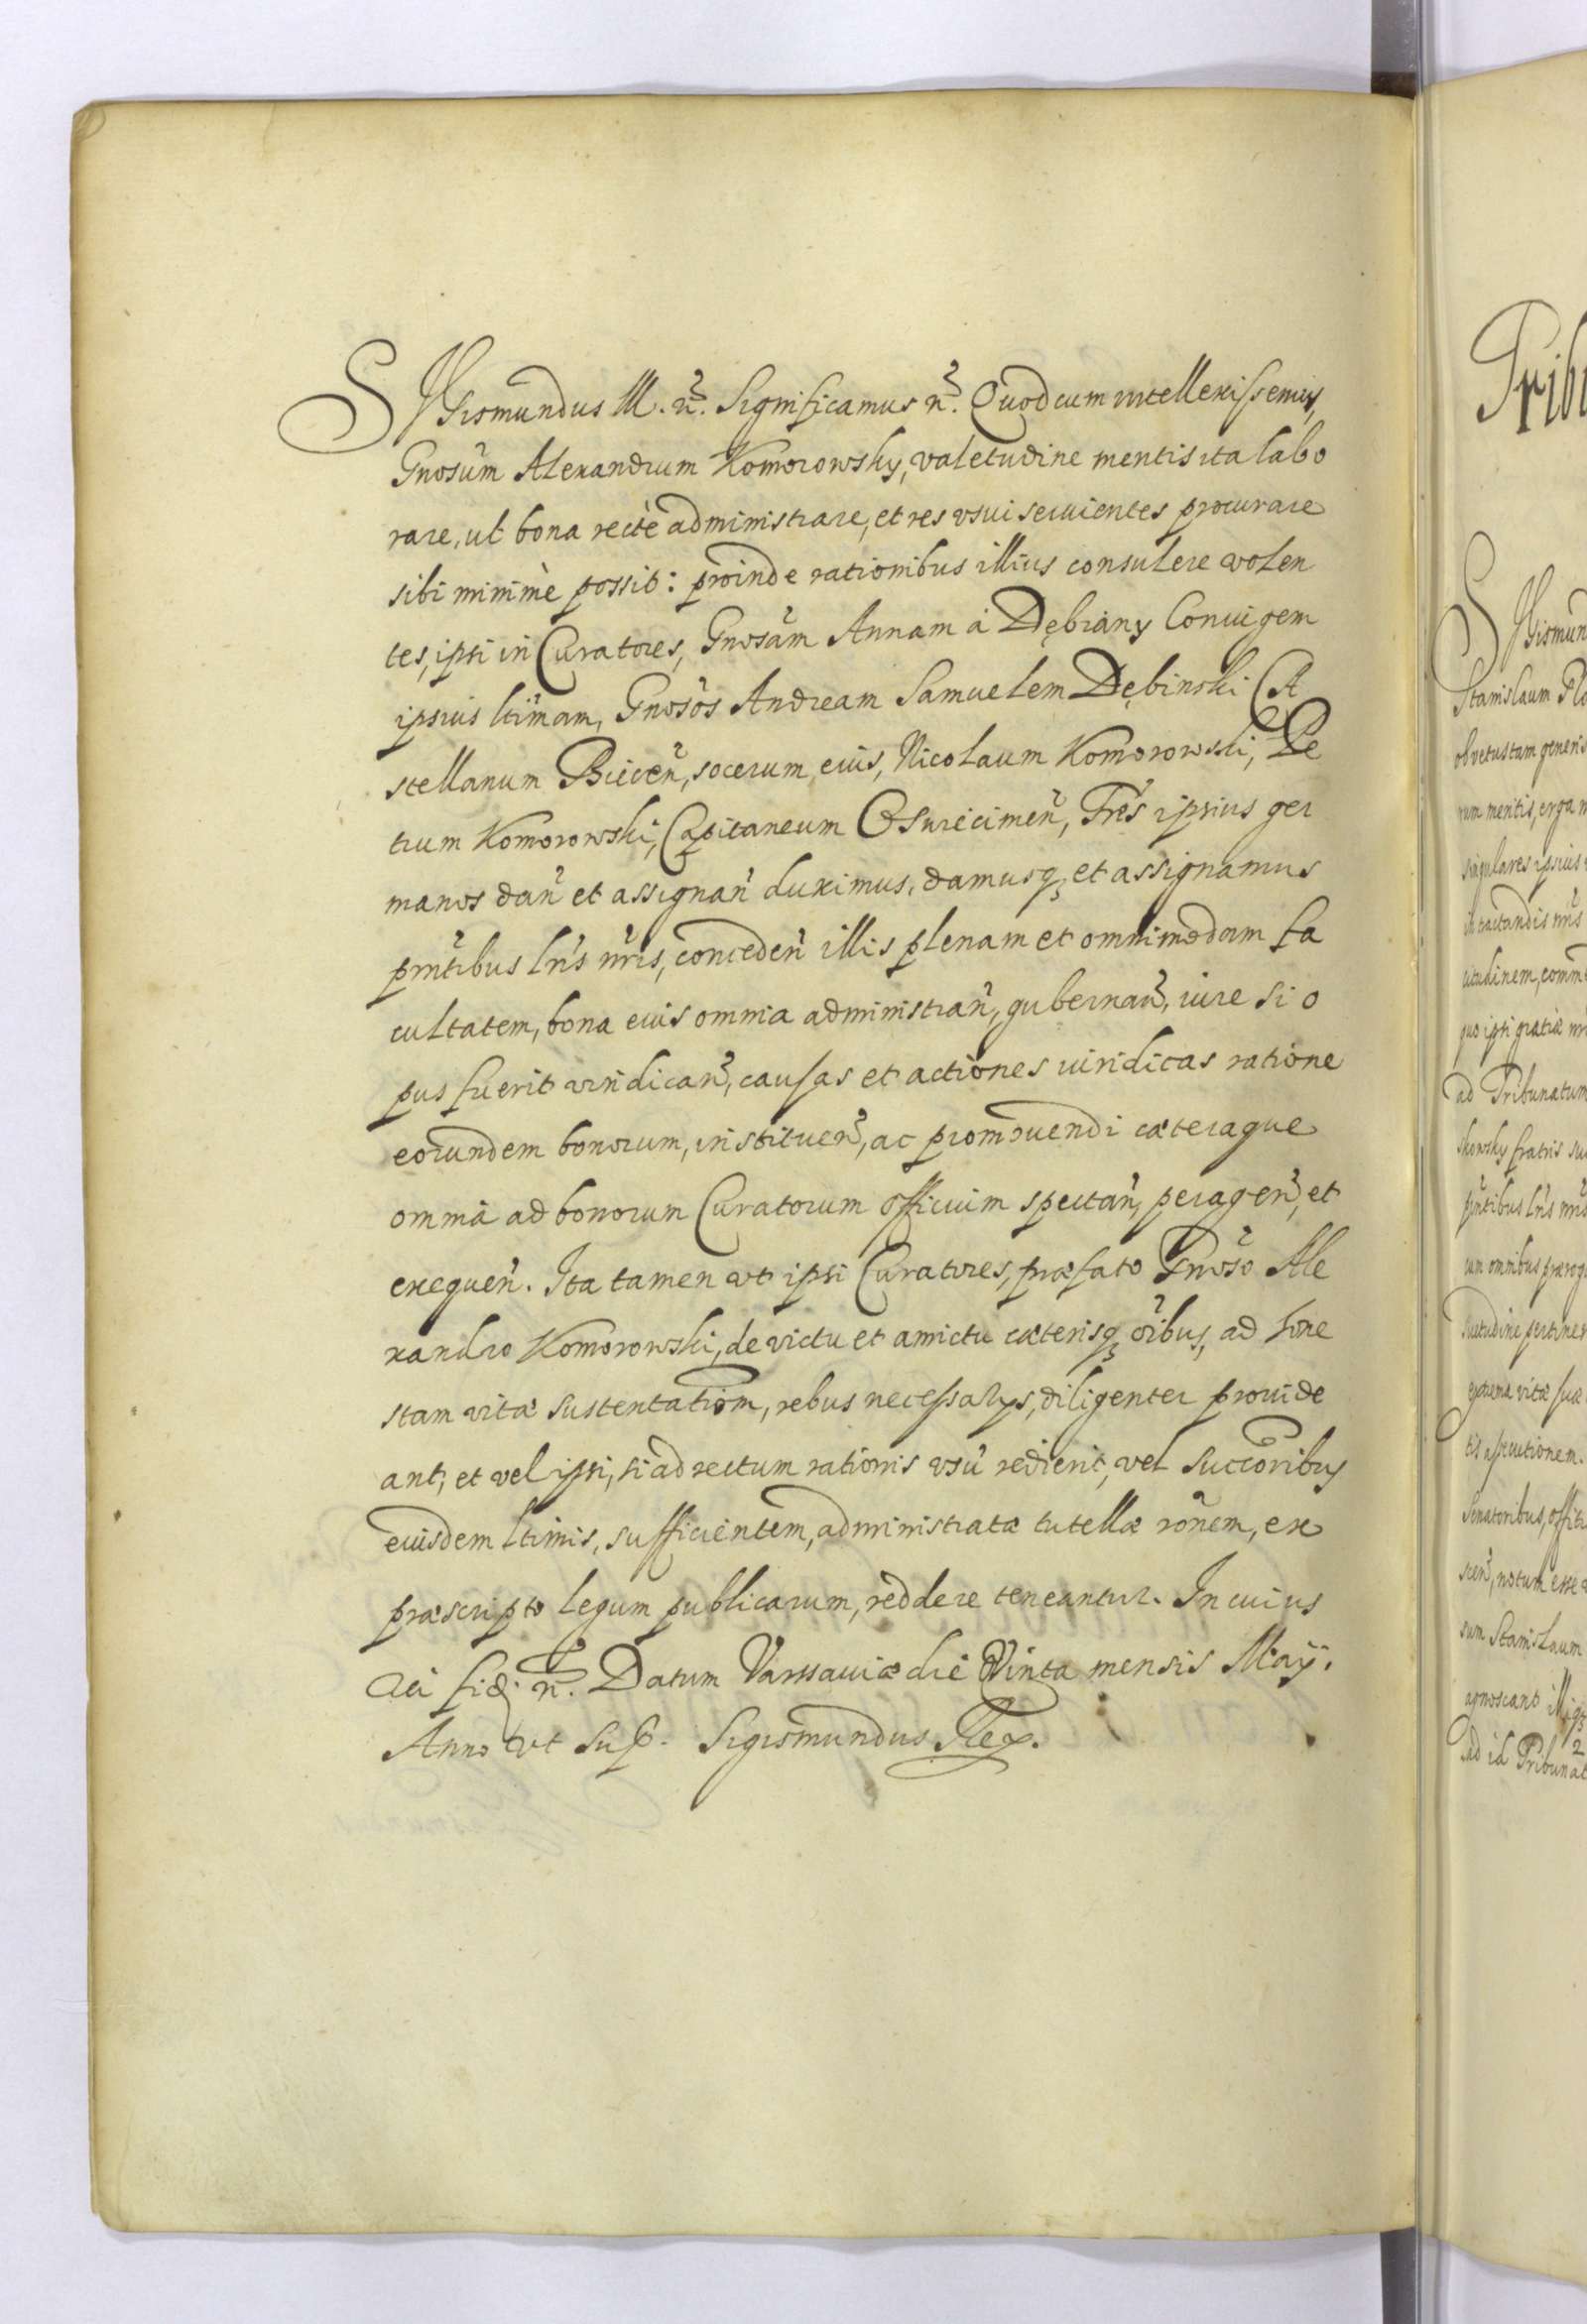 SIgismundus III. n. Significamus n. Quod cum intellexissemus,
Gnosum Alexandrum Komorowsky, valetudine mentis ita labo
rare, ut bona rectè administrare, et res vsui seruientes procurare
sibi minimè possit: proinde rationibus illius consulere volen
tes, ipsi in Curatores, Gnosam Annam à Dębiany Coniugem
ipsius ltimam, Gnosos Andream Samuelem Dębinski Ca
stellanum Biecen, socerum eius, Nicolaum Komorowski, Pe
trum Komorowski, Capitaneum Oswiecimen, Fres ipsius ger
manos dan et assignan duximus, damusq et assignamus
pntibus lris nris, conceden illis plenam et omnimodam fa
cultatem, bona eius omnia administran, gubernan, iure si o
pus fuerit vindican, causas et actiones iuridicas ratione
eorundem bonorum, instituen, ac promouendi cæteraque
omnia ad bonorum Curatorum officium spectan, peragen, et
exequen. Ita tamen vt ipsi Curatores, præfato Gnoso Ale
xandro Komorowski, de victu et amictu cæterisq oibus, ad hone
stam vitæ sustentationem, rebus necessarys, diligenter prouide
ant, et vel ipsi, si ad rectum rationis vsu redierit, vel succoribus
eiusdem ltimis, sufficientem, administratæ tutellæ ronem, ex
præscripto legum publicarum, reddere teneantur. In cuius
rei fid. n. Datum Varssauiæ die Qvinta mensis Maij.
Anno vt sup. Sigismundus Rex.
Tribu
SIgismun
Stanislaum
ob vetustam generis
rum meritis, erga n
singulares ipsius
in tractandis nris
citudinem, comm
quo ipsi gratiæ nr
ad Tribunatum
fratris su
pntibus lris nris
cum omnibus prærog
suetudine pertinen
extrema vitæ suæ
Senatoribus, offiti
notum esse
sum Stanislaum
agnoscant illiq
ad id Tribunat